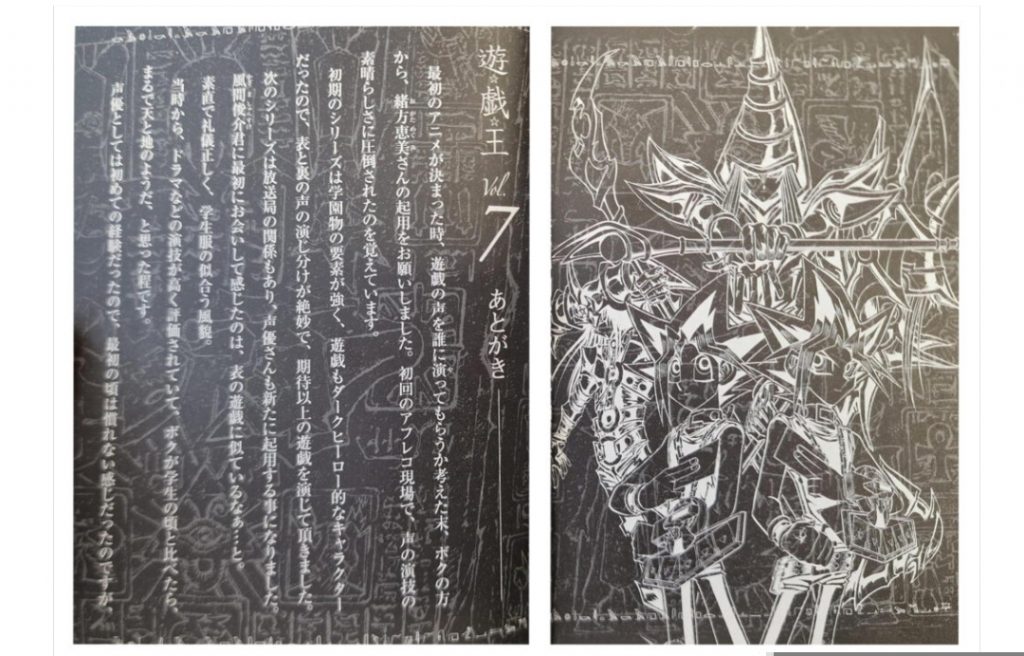 遊☆戯☆王 Vol.7 あとがき
最初のアニメが決まった時、遊戯の声を誰に演ってもらうか考えた末、ボクの方
から、緒方恵美さんの起用をお願いしました。初回のアフレコ現場で、声の演技の
素晴らしさに圧倒されたのを覚えています。
初期のシリーズは学園物の要素が強く、遊戯もダークヒーロー的なキャラクター
だったので、表と裏の声の演じ分けが絶妙で、期待以上の遊戯を演じて頂きました。
次のシリーズは放送局の関係もあり、声優さんも新たに起用する事になりました。
風間俊介君に最初にお会いして感じたのは、表の遊戯に似ているなぁ…と。
素直で礼儀正しく、学生服の似合う風貌。
当時から、ドラマなどの演技が高く評価されていて、ボクが学生の頃と比べたら、
まるで天と地のようだ、と思った程です。
声優としては初めての経験だったので、最初の頃は慣れない感じだったのですが、